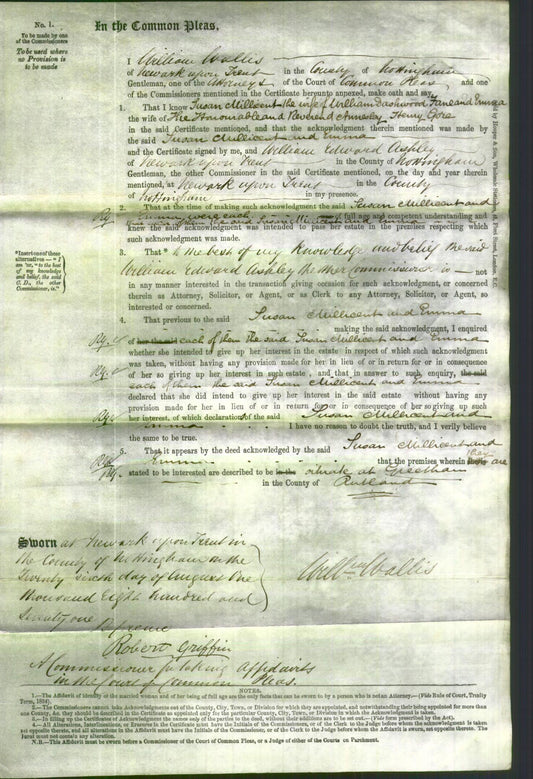 No. 1.
To be made by one of the Commissioners
To be used where no Provision is to be made
In the Common Pleas.
I William Wallis
of Newark upon Trent in the County of Nottingham
Gentleman, one of the Attorneys of the Court of Common Pleas, and one
of the Commissioners mentioned in the Certificate hereunto annexed, make oath and say,
1. That I know Susan Millicent the wife of William Dashwood Fane and Emma
the wife of The Honourable and Reverend Annesley Henry Gore
in the said Certificate mentioned, and that the acknowledgment therein mentioned was made by
the said Susan Millicent and Emma
and the Certificate signed by me, and William Edward Ashley
of Newark upon Trent in the County of Nottingham
Gentleman, the other Commissioner in the said Certificate mentioned, on the day and year therein
mentioned, at Newark upon Trent in the County
of Nottingham in my presence.
2. That at the time of making such acknowledgment the said Susan Millicent and
Emma were each of full age and competent understanding and
the said Susan Millicent and Emma
knew the said acknowledgment was intended to pass her estate in the premises respecting which
such acknowledgment was made.
*Insert one of these alternatives:—"I am "or, "to the best of my knowledge and belief, the said C. D., the other Commissioner, is."
3. That* to the best of my knowledge and belief the said
William Edward Ashley the other Commissioner is — not
in any manner interested in the transaction giving occasion for such acknowledgment, or concerned
therein as Attorney, Solicitor, or Agent, or as Clerk to any Attorney, Solicitor, or Agent, so
interested or concerned.
4. That previous to the said Susan Millicent and Emma
making the said acknowledgment, I enquired
of her the said each of them the said Susan Millicent and Emma
whether she intended to give up her interest in the estate in respect of which such acknowledgment
was taken, without having any provision made for her in lieu of or in return for or in consequence
of her so giving up her interest in such estate, and that in answer to such enquiry, the said
each of them the said Susan Millicent and Emma
declared that she did intend to give up her interest in the said estate without having any
provision made for her in lieu of or in return for or in consequence of her so giving up such
her interest, of which declaration of the said Susan Millicent and
Emma I have no reason to doubt the truth, and I verily believe
the same to be true.
5. That it appears by the deed acknowledged by the said Susan Millicent and
Emma that the premises wherein they are
stated to be interested are described to be in the situate at Greetham
in the County of Rutland
Sworn at Newark upon Trent in
the County of Nottingham on the
Twenty sixth day of August One
thousand Eight hundred and
Seventy one
Before me
Robert Griffin
A Commissioner for taking Affidavits
in the Court of Common Pleas.
Willm Wallis
NOTES.
1.—The Affidavit of identity of the married woman and of her being of full age are the only facts that can be sworn to by a person who is not an Attorney.—(Vide Rule of Court, Trinity Term, 1834).
2.—The Commissioners cannot take Acknowledgments out of the County, City, Town, or Division for which they are appointed, and notwithstanding their being appointed for more than one County, &c. they should be described in the Certificate as appointed only for the particular County, City, Town, or Division in which the Acknowledgment is taken.
3.—In filling up the Certificates of Acknowledgment the names only of the parties to the deed, without their additions are to be set out.—(Vide form prescribed by the Act).
4.—All Alterations, Interlineations, or Erasures in the Certificate must have the Initials of the Commissioners, or of the Clerk to the Judge before whom the acknowledgment is taken set opposite thereto, and all alterations in the Affidavit must have the Initials of the Commissioner, or of the Clerk to the Judge before whom the Affidavit is sworn, set opposite thereto. The Jurat must not contain any alteration.
N.B.—This Affidavit must be sworn before a Commissioner of the Court of Common Pleas, or a Judge of either of the Courts on Parchment.